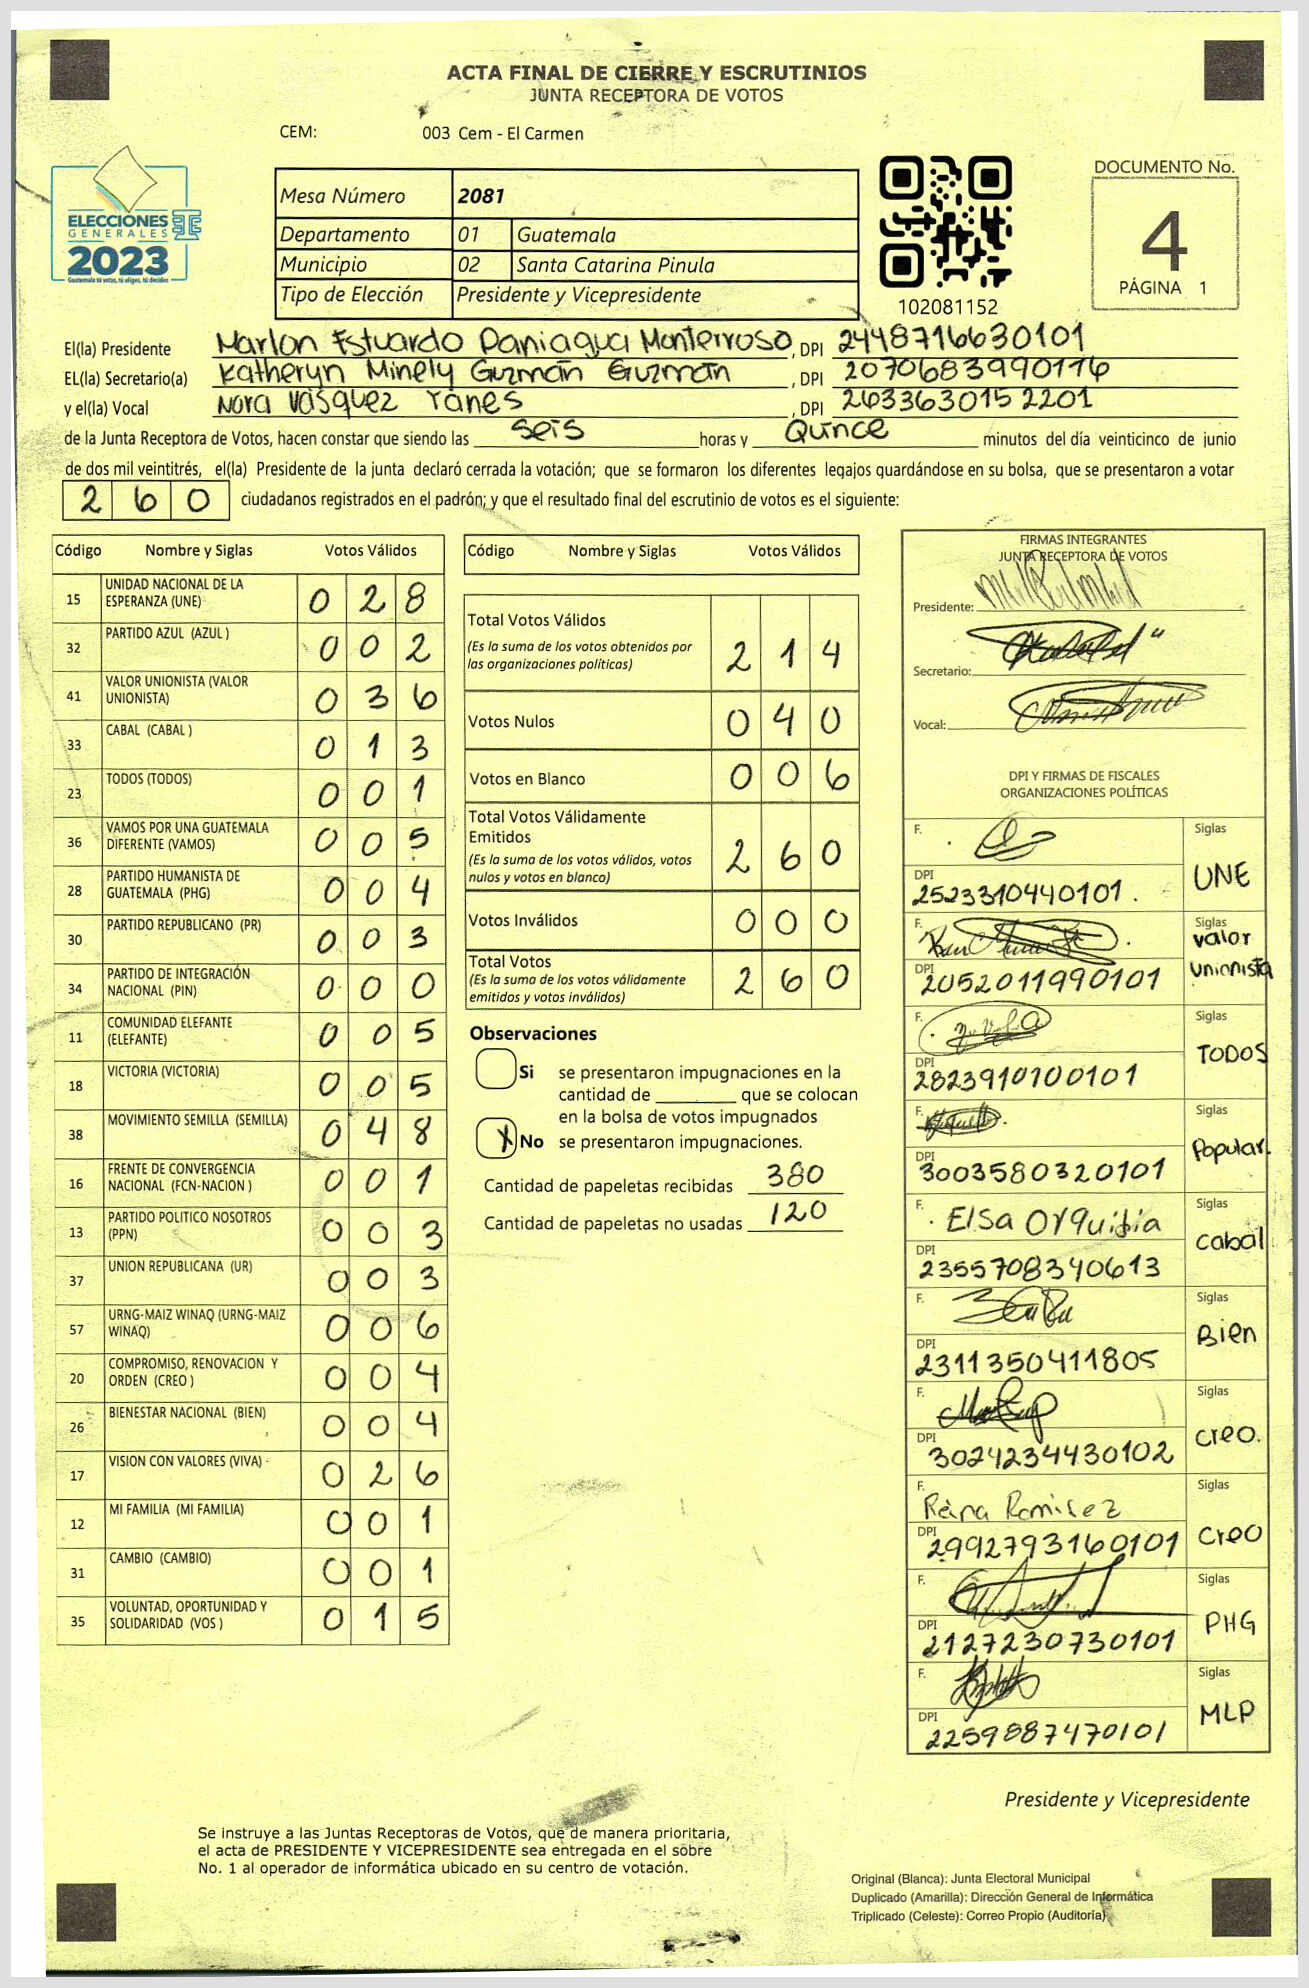 ACTA FINAL DE CIERRE Y ESCRUTINIOS
JUNTA RECEPTORA DE VOTOS
CEM: 003 Cem - El Carmen
ELECCIONES
GENERALES
2023
Guatemala tú votas, tú eliges, tú decides
Mesa Número 2081
Departamento 01 Guatemala
Municipio 02 Santa Catarina Pinula
Tipo de Elección Presidente y Vicepresidente
102081152
DOCUMENTO No.
4
PÁGINA 1
El(la) Presidente Marlon Estuardo Paniagua Monterroso, DPI 2448716630101
EL(la) Secretario(a) Katheryn Minely Guzmán Guzmán, DPI 2070683990116
y el(la) Vocal Nora Vásquez Yanes, DPI 2633630152201
de la Junta Receptora de Votos, hacen constar que siendo las seis horas y Quince minutos del día veinticinco de junio
de dos mil veintitrés, el(la) Presidente de la junta declaró cerrada la votación; que se formaron los diferentes legajos guardándose en su bolsa, que se presentaron a votar
260 ciudadanos registrados en el padrón; y que el resultado final del escrutinio de votos es el siguiente:
Código Nombre y Siglas Votos Válidos
15 UNIDAD NACIONAL DE LA
ESPERANZA (UNE) 028
32 PARTIDO AZUL (AZUL ) 002
41 VALOR UNIONISTA (VALOR
UNIONISTA) 036
33 CABAL (CABAL ) 013
23 TODOS (TODOS) 001
36 VAMOS POR UNA GUATEMALA
DIFERENTE (VAMOS) 005
28 PARTIDO HUMANISTA DE
GUATEMALA (PHG) 004
30 PARTIDO REPUBLICANO (PR) 003
34 PARTIDO DE INTEGRACIÓN
NACIONAL (PIN) 000
11 COMUNIDAD ELEFANTE
(ELEFANTE) 005
18 VICTORIA (VICTORIA) 005
38 MOVIMIENTO SEMILLA (SEMILLA) 048
16 FRENTE DE CONVERGENCIA
NACIONAL (FCN-NACION ) 001
13 PARTIDO POLITICO NOSOTROS
(PPN) 003
37 UNION REPUBLICANA (UR) 003
57 URNG-MAIZ WINAQ (URNG-MAIZ
WINAQ) 006
20 COMPROMISO, RENOVACION Y
ORDEN (CREO ) 004
26 BIENESTAR NACIONAL (BIEN) 004
17 VISION CON VALORES (VIVA) 026
12 MI FAMILIA (MI FAMILIA) 001
31 CAMBIO (CAMBIO) 001
35 VOLUNTAD, OPORTUNIDAD Y
SOLIDARIDAD (VOS ) 015
Código Nombre y Siglas Votos Válidos
Total Votos Válidos
(Es la suma de los votos obtenidos por
las organizaciones políticas) 214
Votos Nulos 040
Votos en Blanco 006
Total Votos Válidamente
Emitidos
(Es la suma de los votos válidos, votos
nulos y votos en blanco) 260
Votos Inválidos 000
Total Votos
(Es la suma de los votos válidamente
emitidos y votos inválidos) 260
Observaciones
Si se presentaron impugnaciones en la
cantidad de ________ que se colocan
en la bolsa de votos impugnados
X No se presentaron impugnaciones.
Cantidad de papeletas recibidas 380
Cantidad de papeletas no usadas 120
FIRMAS INTEGRANTES
JUNTA RECEPTORA DE VOTOS
Presidente:
Secretario:
Vocal:
DPI Y FIRMAS DE FISCALES
ORGANIZACIONES POLÍTICAS
F. Siglas
UNE
DPI
2523310440101.
F. Siglas
valor
unionista
DPI
2052011990101
F. Siglas
TODOS
DPI
2823910100101
F. Siglas
Popular.
DPI
3003580320101
F. Elsa Orquidia Siglas
cabal
DPI
2355708340613
F. Siglas
Bien
DPI
2311350411805
F. Siglas
creo.
DPI
3024234430102
F. Reina Ramirez Siglas
creo
DPI
2992793160101
F. Siglas
PHG
DPI
2127230730101
F. Siglas
MLP
DPI
2259887470101
Presidente y Vicepresidente
Se instruye a las Juntas Receptoras de Votos, que de manera prioritaria,
el acta de PRESIDENTE Y VICEPRESIDENTE sea entregada en el sobre
No. 1 al operador de informática ubicado en su centro de votación.
Original (Blanca): Junta Electoral Municipal
Duplicado (Amarilla): Dirección General de Informática
Triplicado (Celeste): Correo Propio (Auditoría)